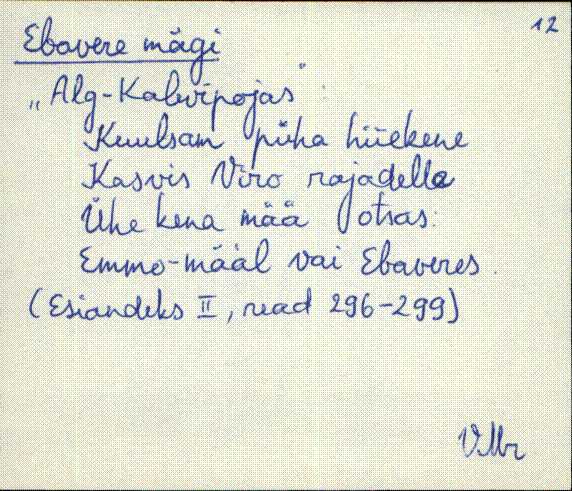 12
Ebavere mägi
„Alg-Kalevipojas":
Kuulsam püha hiiekene
Kasvis Viro rajadelle
Ühe kena mää otsas:
Emmo-määl vai Ebaveres.
(Esiandeks II, read 296-299)